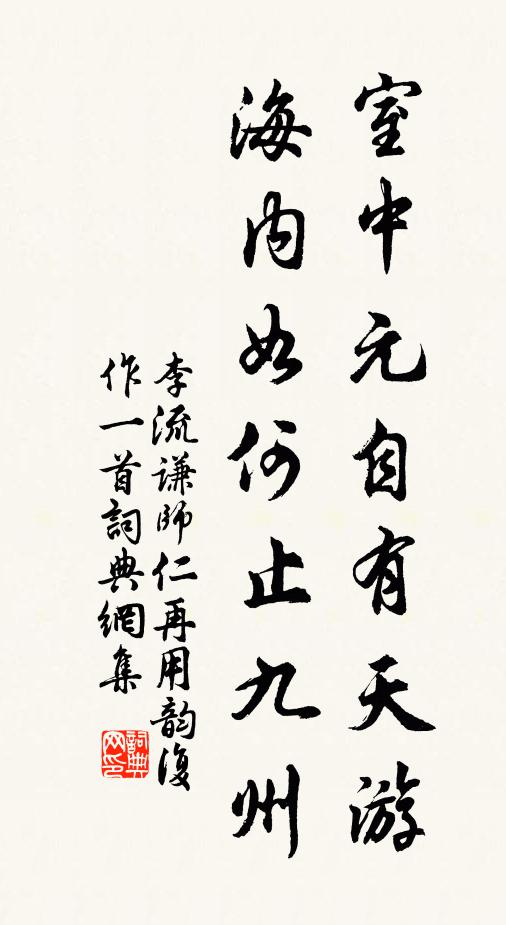 室中元自有天游
海内如何止九州
李流謙師仁再用韵復
作一首詞典網集
詞典
网印